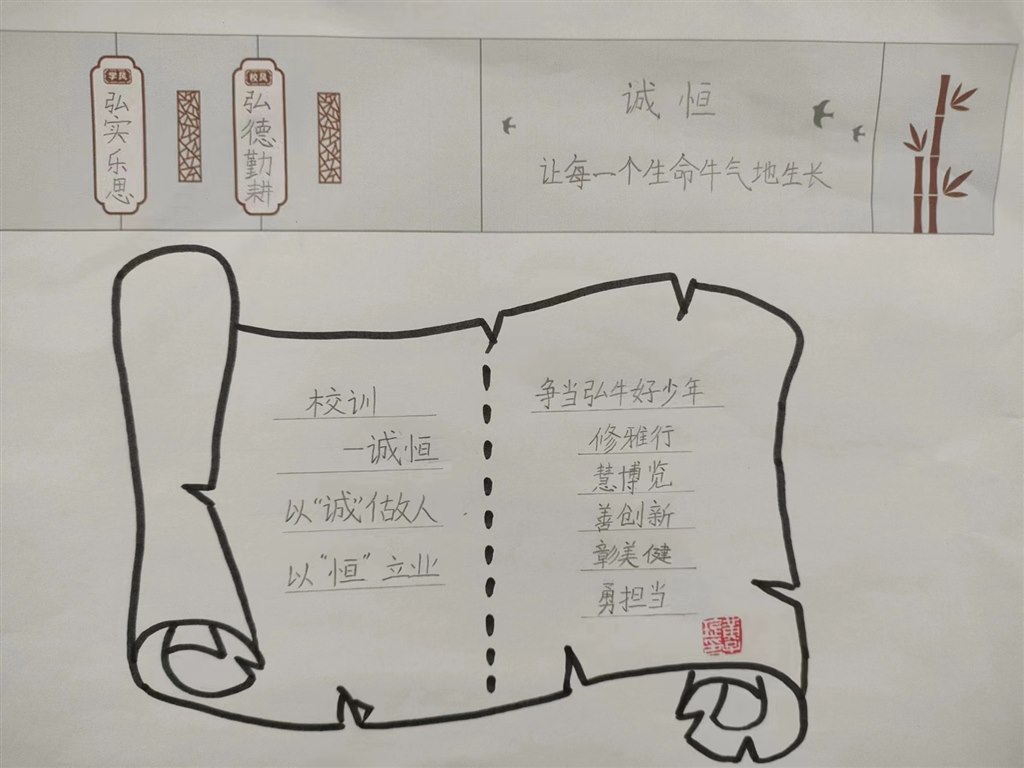 学风
弘实乐思
校风
弘德勤耕
诚恒
让每一个生命牛气地生长
校训
—诚恒
以“诚”做人
以“恒”立业
争当弘牛好少年
修雅行
慧博览
善创新
彰美健
勇担当